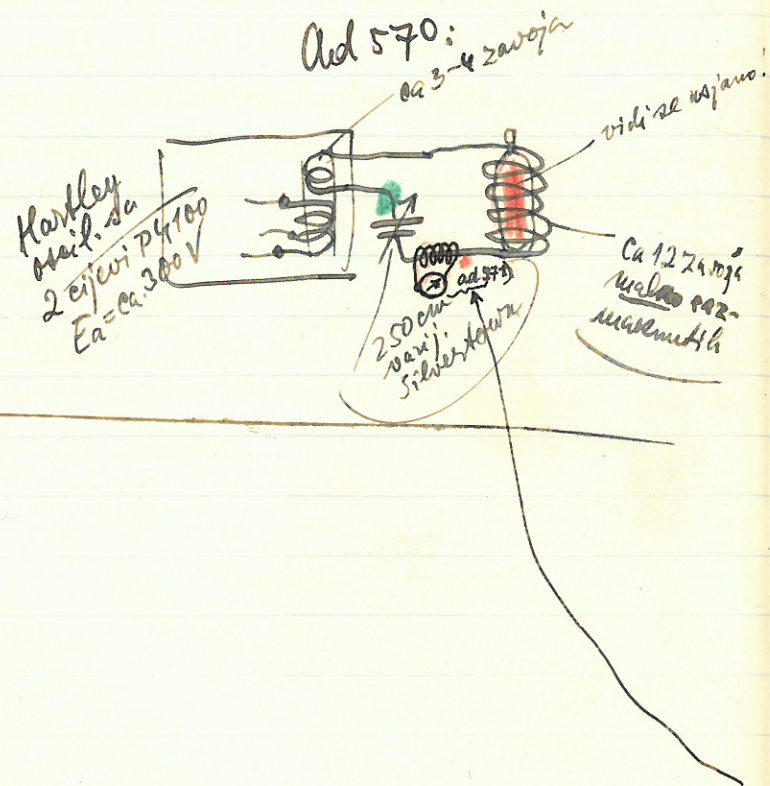 Ad 570:
ca 3-4 zavoja
vidi se usjano!
Hartley
oscil. sa
2 cijevi P4100
Ea=ca.300V
ad 571)
250 cm
varij.
Silvertown
Ca 12 zavoja
malo raz-
maknutih